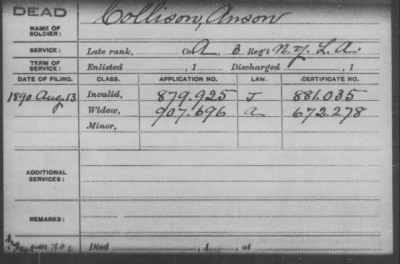 DEAD
NAME OF SOLDIER: Collison, Anson
SERVICE: Late rank, Co. A, 3 Reg't N.Y. L.A.
TERM OF SERVICE: Enlisted , 1 Discharged , 1
DATE OF FILING. CLASS. APPLICATION NO. LAW. CERTIFICATE NO.
1890 Aug. 13 Invalid, 879.925 J 881.035
Widow, 907.696 a 672.278
Minor,
ADDITIONAL SERVICES:
REMARKS:
Died , 1 , at